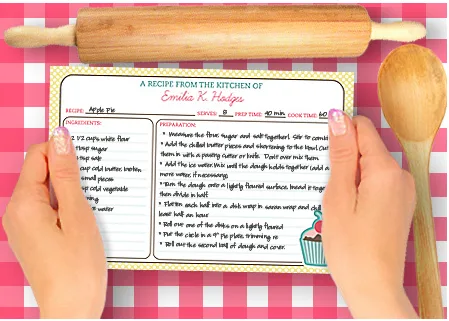 A RECIPE FROM THE KITCHEN OF
Emilia K. Hodges
RECIPE: Apple Pie SERVES: 8 PREP TIME: 40 min COOK TIME: 60
INGREDIENTS:
2 1/2 cups white flour
tbsp sugar
tsp salt
cup cold butter
small pieces
cup cold vegetable
water
PREPARATION:
• Measure the flour, sugar and salt together. Stir to combine
• Add the chilled butter pieces and shortening to the bowl. Cut
them in with a pastry cutter or knife. Don't over mix them.
• Add the ice water. Mix until the dough holds together (add a
more water, if necessary).
• Turn the dough onto a lightly floured surface, knead it together
then divide in half.
• Flatten each half into a disk, wrap in saran wrap and chill
least half an hour
• Roll out one of the disks on a lightly floured
• Put the circle in a 9" pie plate, trimming
• Roll out the second ball of dough and cover.